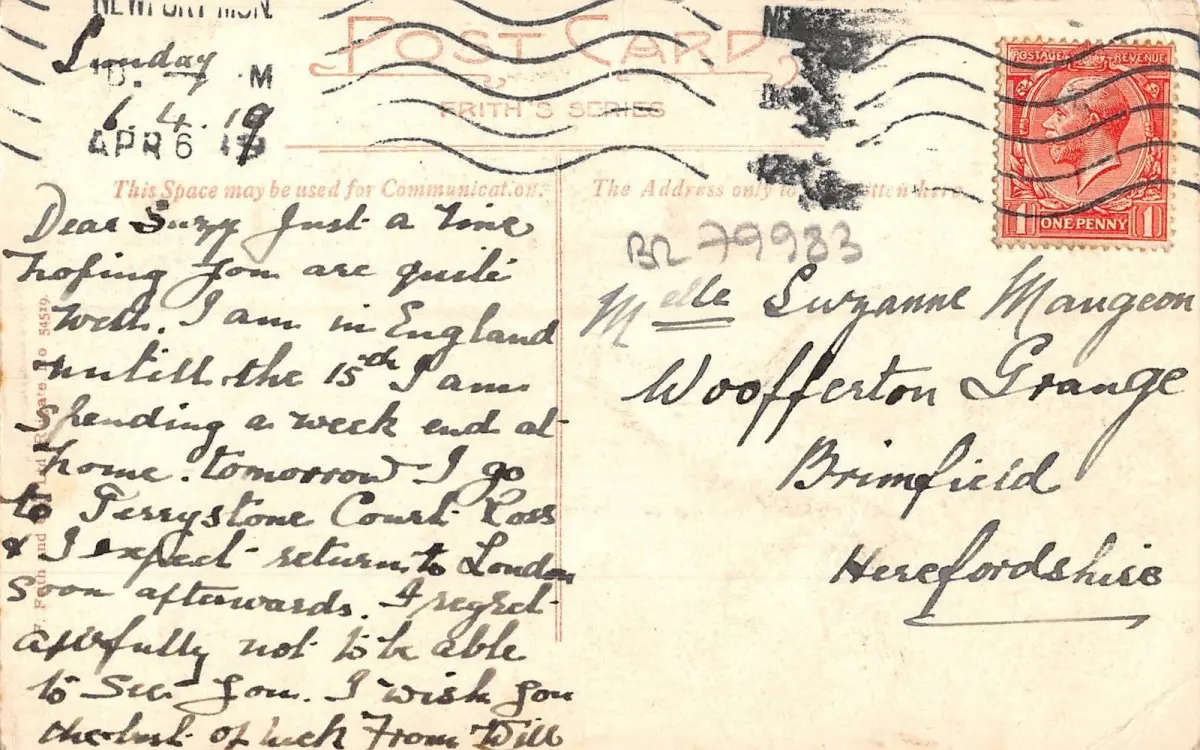 NEWPORT MON.
POST CARD
FRITH'S SERIES
Sunday
6.4.19
APR 6 19
This Space may be used for Communication.
The Address only to be written here.
POSTAGE REVENUE
1 ONE PENNY 1
BR 79983
Dear Suzy Just a line
hoping you are quite
well. I am in England
untill the 15th I am
spending a week end at
home. tomorrow I go
to Perrystone Court Ross
& I expect return to London
soon afterwards. I regret
awfully not to be able
to see you. I wish you
the best of luck From Will
Melle Suzanne Maugeon
Woofferton Grange
Brimfield
Herefordshire
F. Frith and Co. Ltd Reigate No 54519.